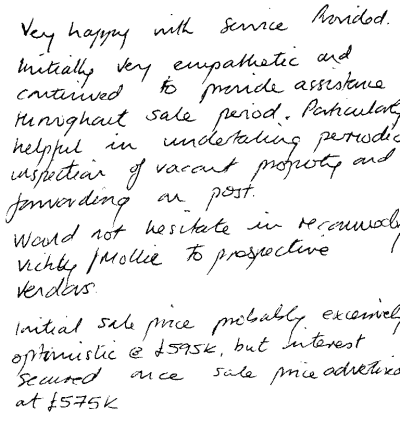 Very happy with service Provided.
Initially very empathetic and
continued to provide assistance
throughout sale period. Particularly
helpful in undertaking periodic
inspection of vacant property and
forwarding on post.
Would not hesitate in recommend
/Mollie to prospective
vendors.
Initial sale price probably excessively
optimistic @ £595K, but interest
secured once sale price advertised
at £575K